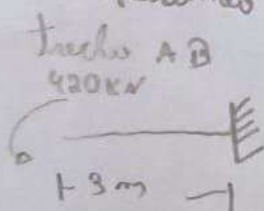 trecho AB
420KN
3m